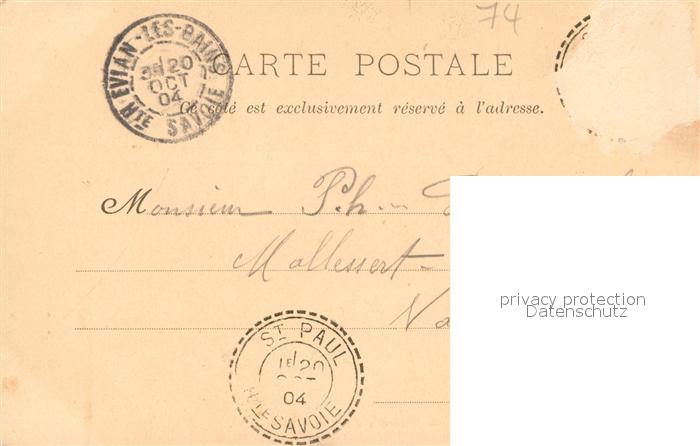 74
EVIAN-LES-BAINS
20
OCT
04
Hte SAVOIE
CARTE POSTALE
Ce côté est exclusivement réservé à l'adresse.
Monsieur Ph
privacy protection
Datenschutz
ST PAUL
1E 20
04
HTE SAVOIE